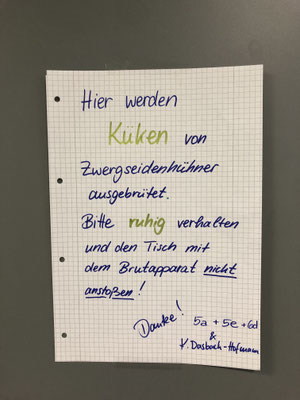 Hier werden
Küken von
Zwergseidenhühner
ausgebrütet.
Bitte ruhig verhalten
und den Tisch mit
dem Brutapparat nicht
anstoßen!
Danke!
5a + 5e + 6d
&
K. Dasbach-Hofmann